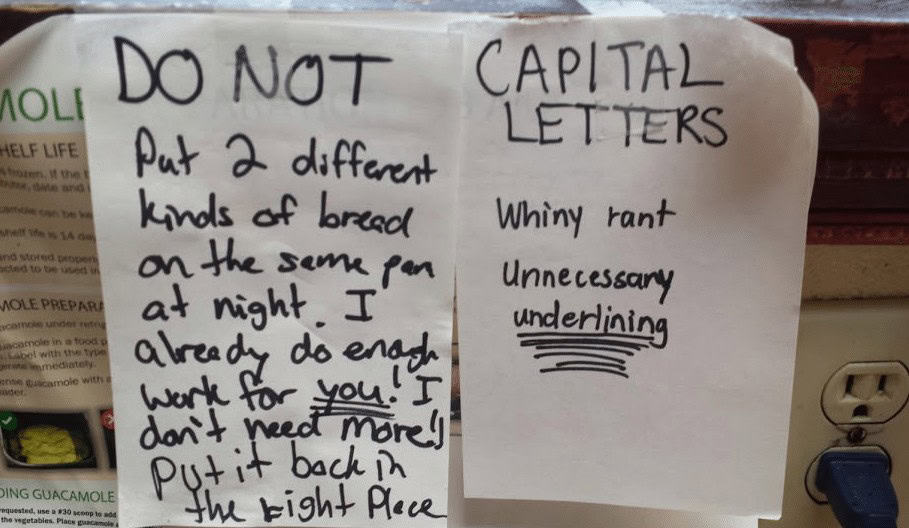 DO NOT
Put 2 different
kinds of bread
on the same pan
at night. I
already do enough
work for you! I
don't need more!!
Put it back in
the right Place
CAPITAL
LETTERS
Whiny rant
Unnecessary
underlining
HELF LIFE
frozen. If the
date and
camole can be
shelf life is 14
and stored
to be used in
MOLE PREPARA
acamole under
in a food
Label with the type
immediately.
guacamole with
DING GUACAMOLE
requested, use a #30 scoop to add
the vegetables. Place guacamole